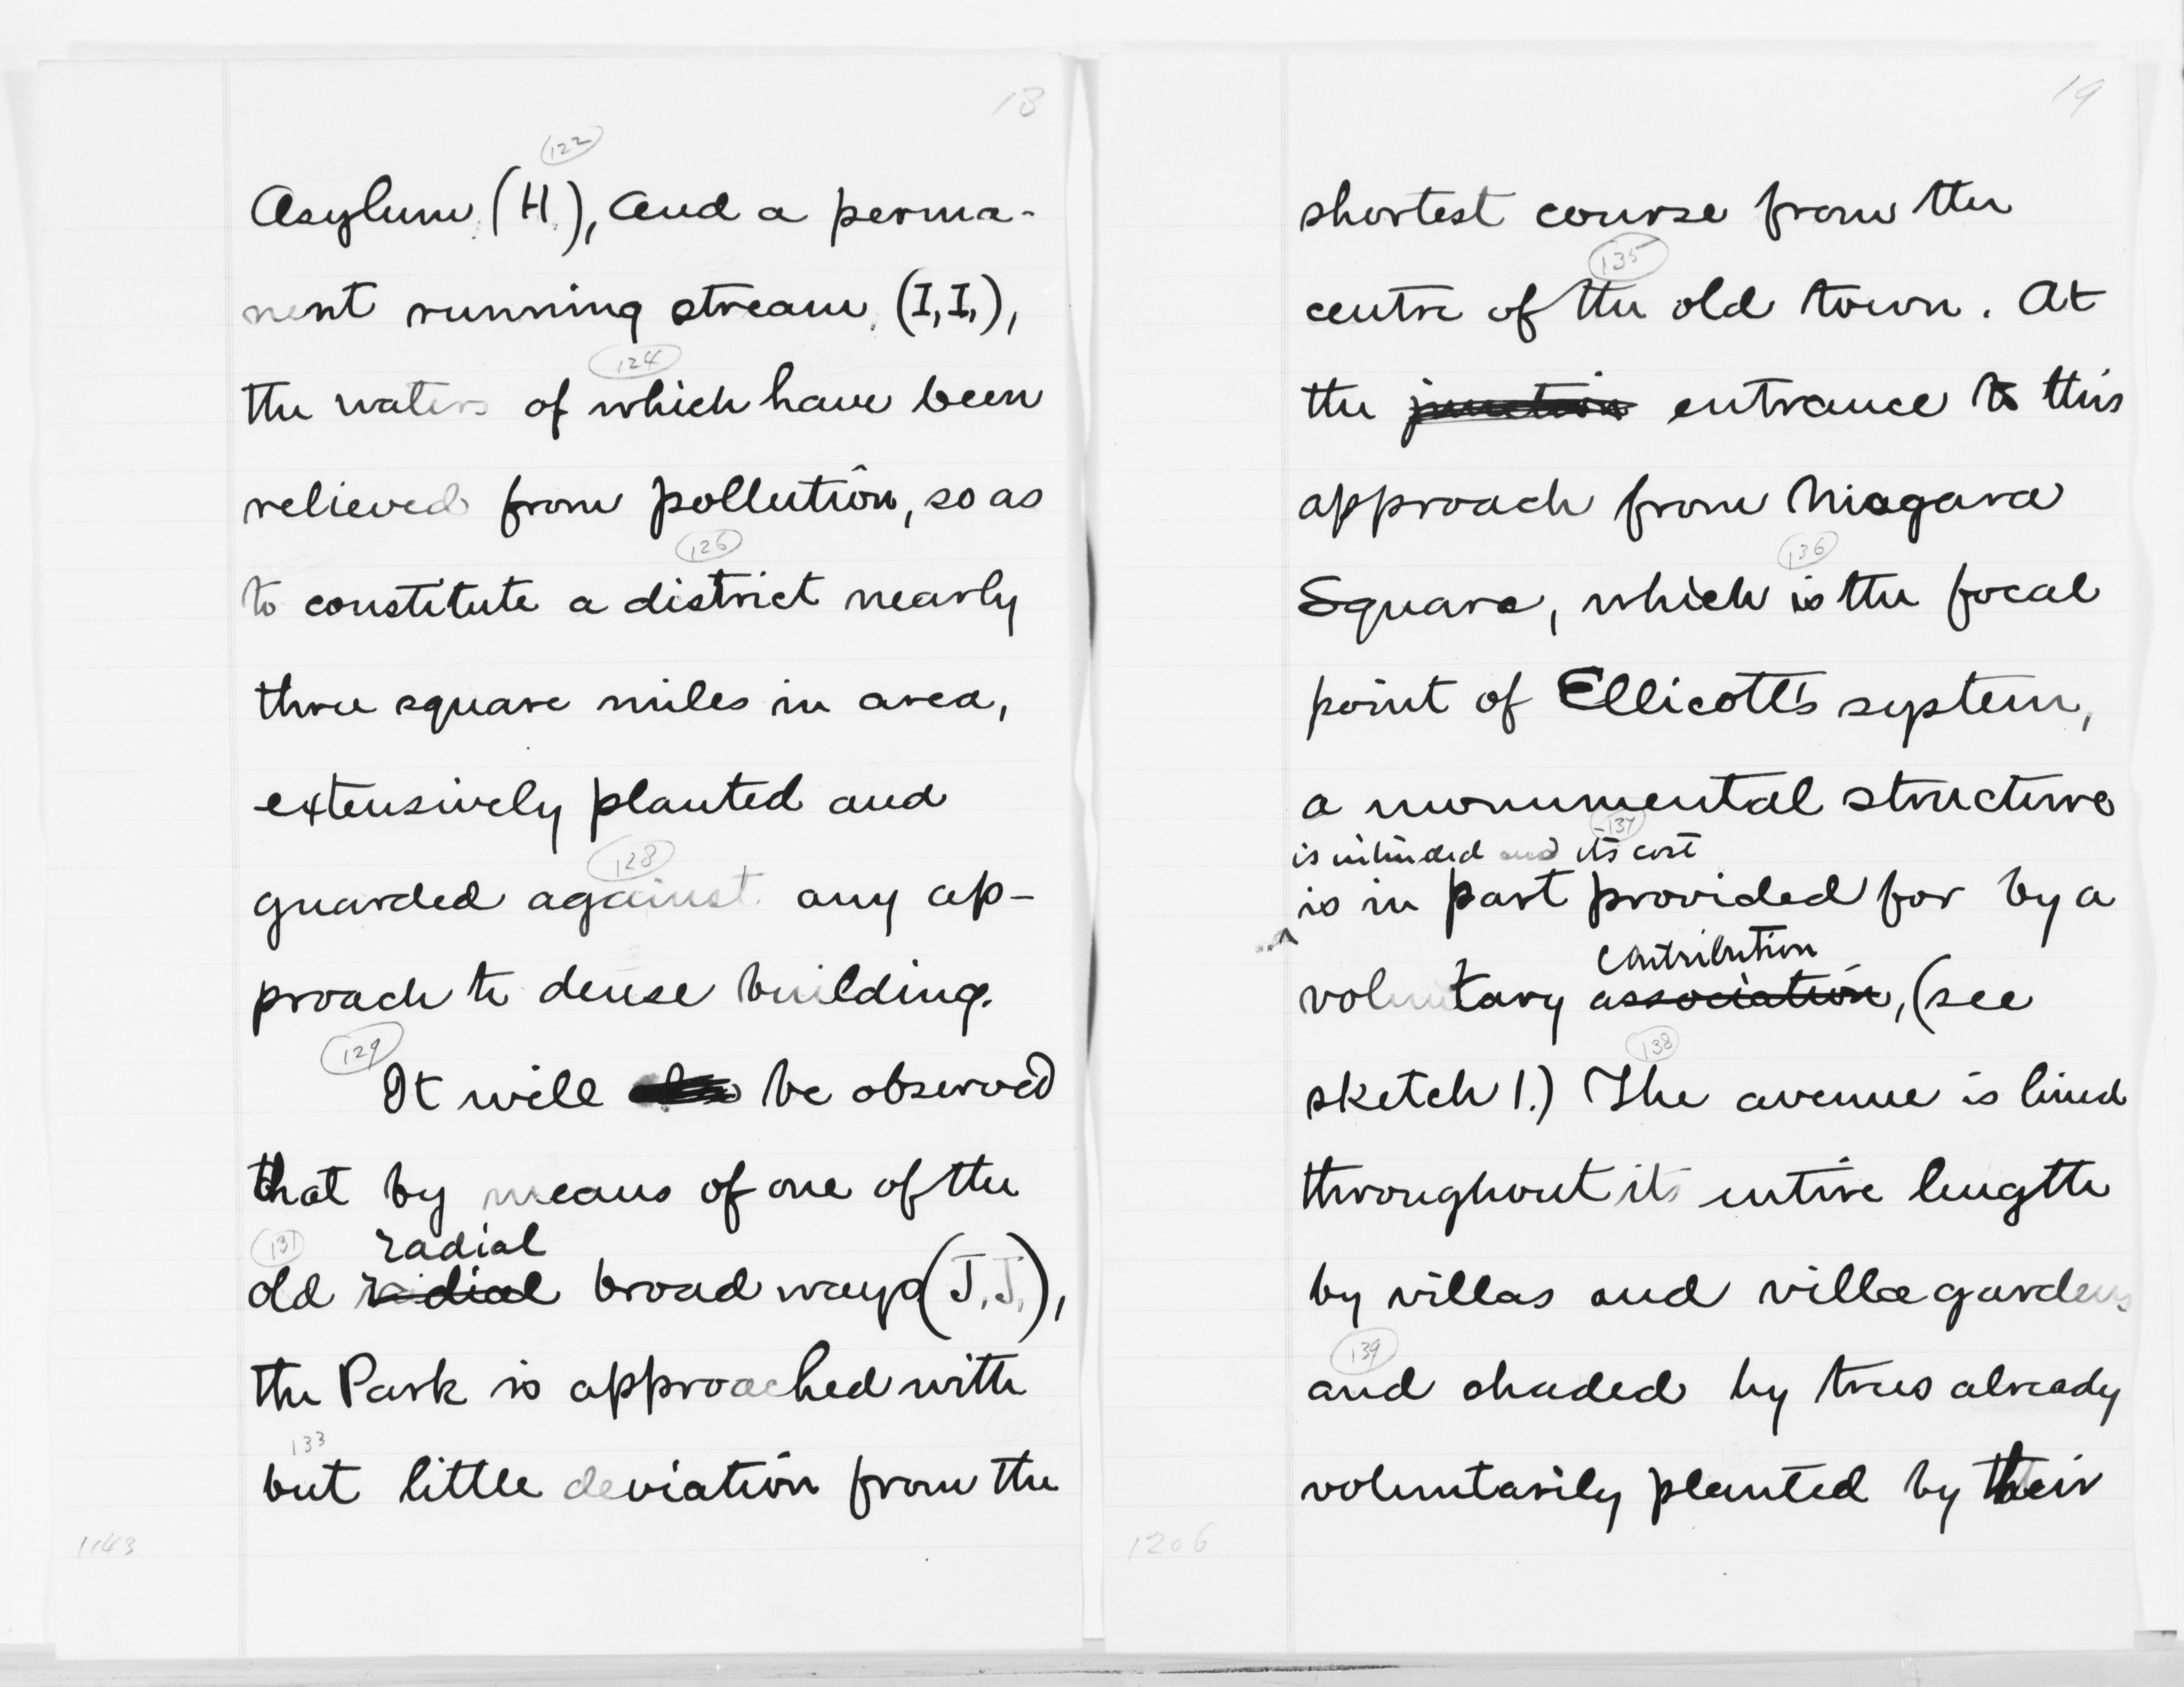 18
122
Asylum (H.), and a perma-
nent running stream, (I, I,),
124
the waters of which have been
relieved from pollution, so as
126
to constitute a district nearly
three square miles in area,
extensively planted and
128
guarded against any ap-
proach to dense building.
129
It will be observed
that by means of one of the
131 radial
old radial broad ways (J, J,),
the Park is approached with
133
but little deviation from the
1143
19
shortest course from the
135
centre of the old town. At
the junction entrance to this
approach from Niagara
136
Square, which is the focal
point of Ellicott's system,
a monumental structure
-137
is intended and its cost
is in part provided for by a
^
contribution
voluntary association, (see
138
sketch 1.) The avenue is lined
throughout its entire length
by villas and villa gardens
139
and shaded by trees already
voluntarily planted by their
1206